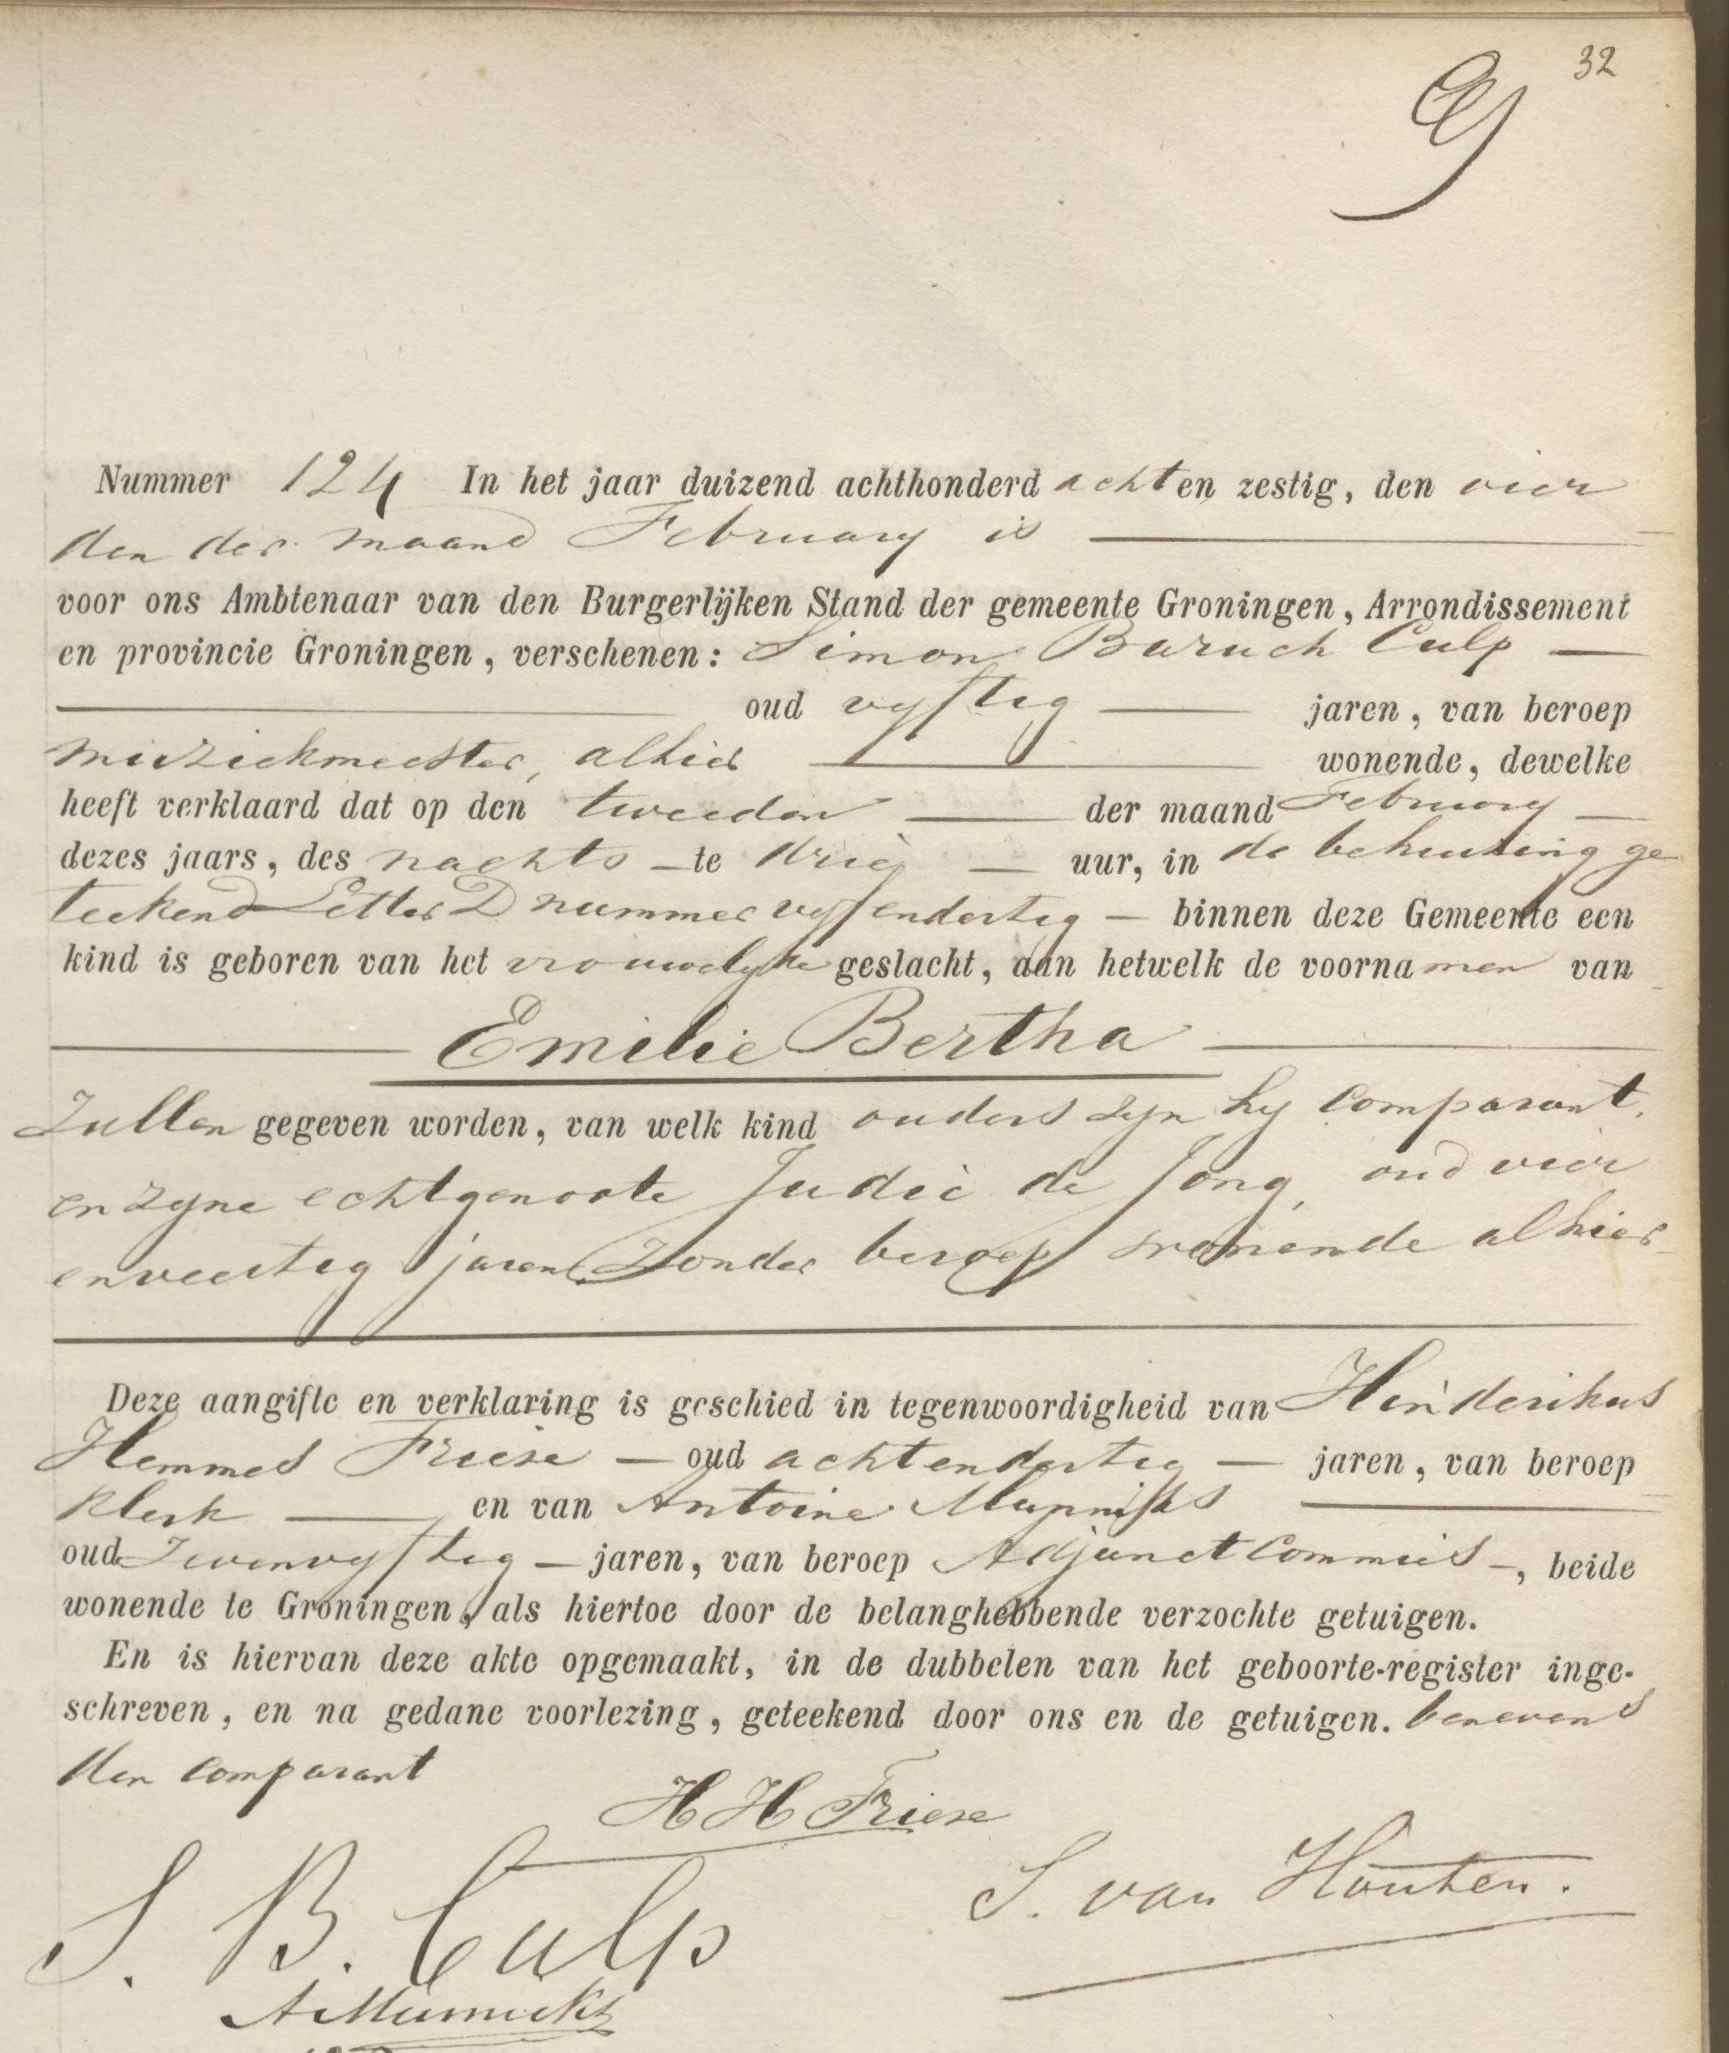 32
Nummer 124 In het jaar duizend achthonderd acht en zestig, den vier
den der maand February is
voor ons Ambtenaar van den Burgerlijken Stand der gemeente Groningen, Arrondissement
en provincie Groningen, verschenen: Simon Baruch Culp
oud vyftig jaren, van beroep
muziekmeester, alhier wonende, dewelke
heeft verklaard dat op den tweeden der maand February
dezes jaars, des nachts te drie uur, in de behuizing ge
teekend Letter D nummer vyfendertig binnen deze Gemeente een
kind is geboren van het vrouwelyke geslacht, aan hetwelk de voornamen van
Emilie Bertha
Zullen gegeven worden, van welk kind ouders zyn hy Comparant
en zyne echtgenoote Judic de Jong, oud vier
enveertig jaren, Zonder beroep wonende alhier
Deze aangifte en verklaring is geschied in tegenwoordigheid van Henderikus
Hemmes Friese oud achtendertig jaren, van beroep
Klerk en van Antoine Munniks
oud Zevenvyftig jaren, van beroep Adjunct Commies, beide
wonende te Groningen, als hiertoe door de belanghebbende verzochte getuigen.
En is hiervan deze akte opgemaakt, in de dubbelen van het geboorte-register inge-
schreven, en na gedane voorlezing, geteekend door ons en de getuigen. benevens
den Comparant
H H Friese
S. van Houten.
S. B. Culp
A Munnicks